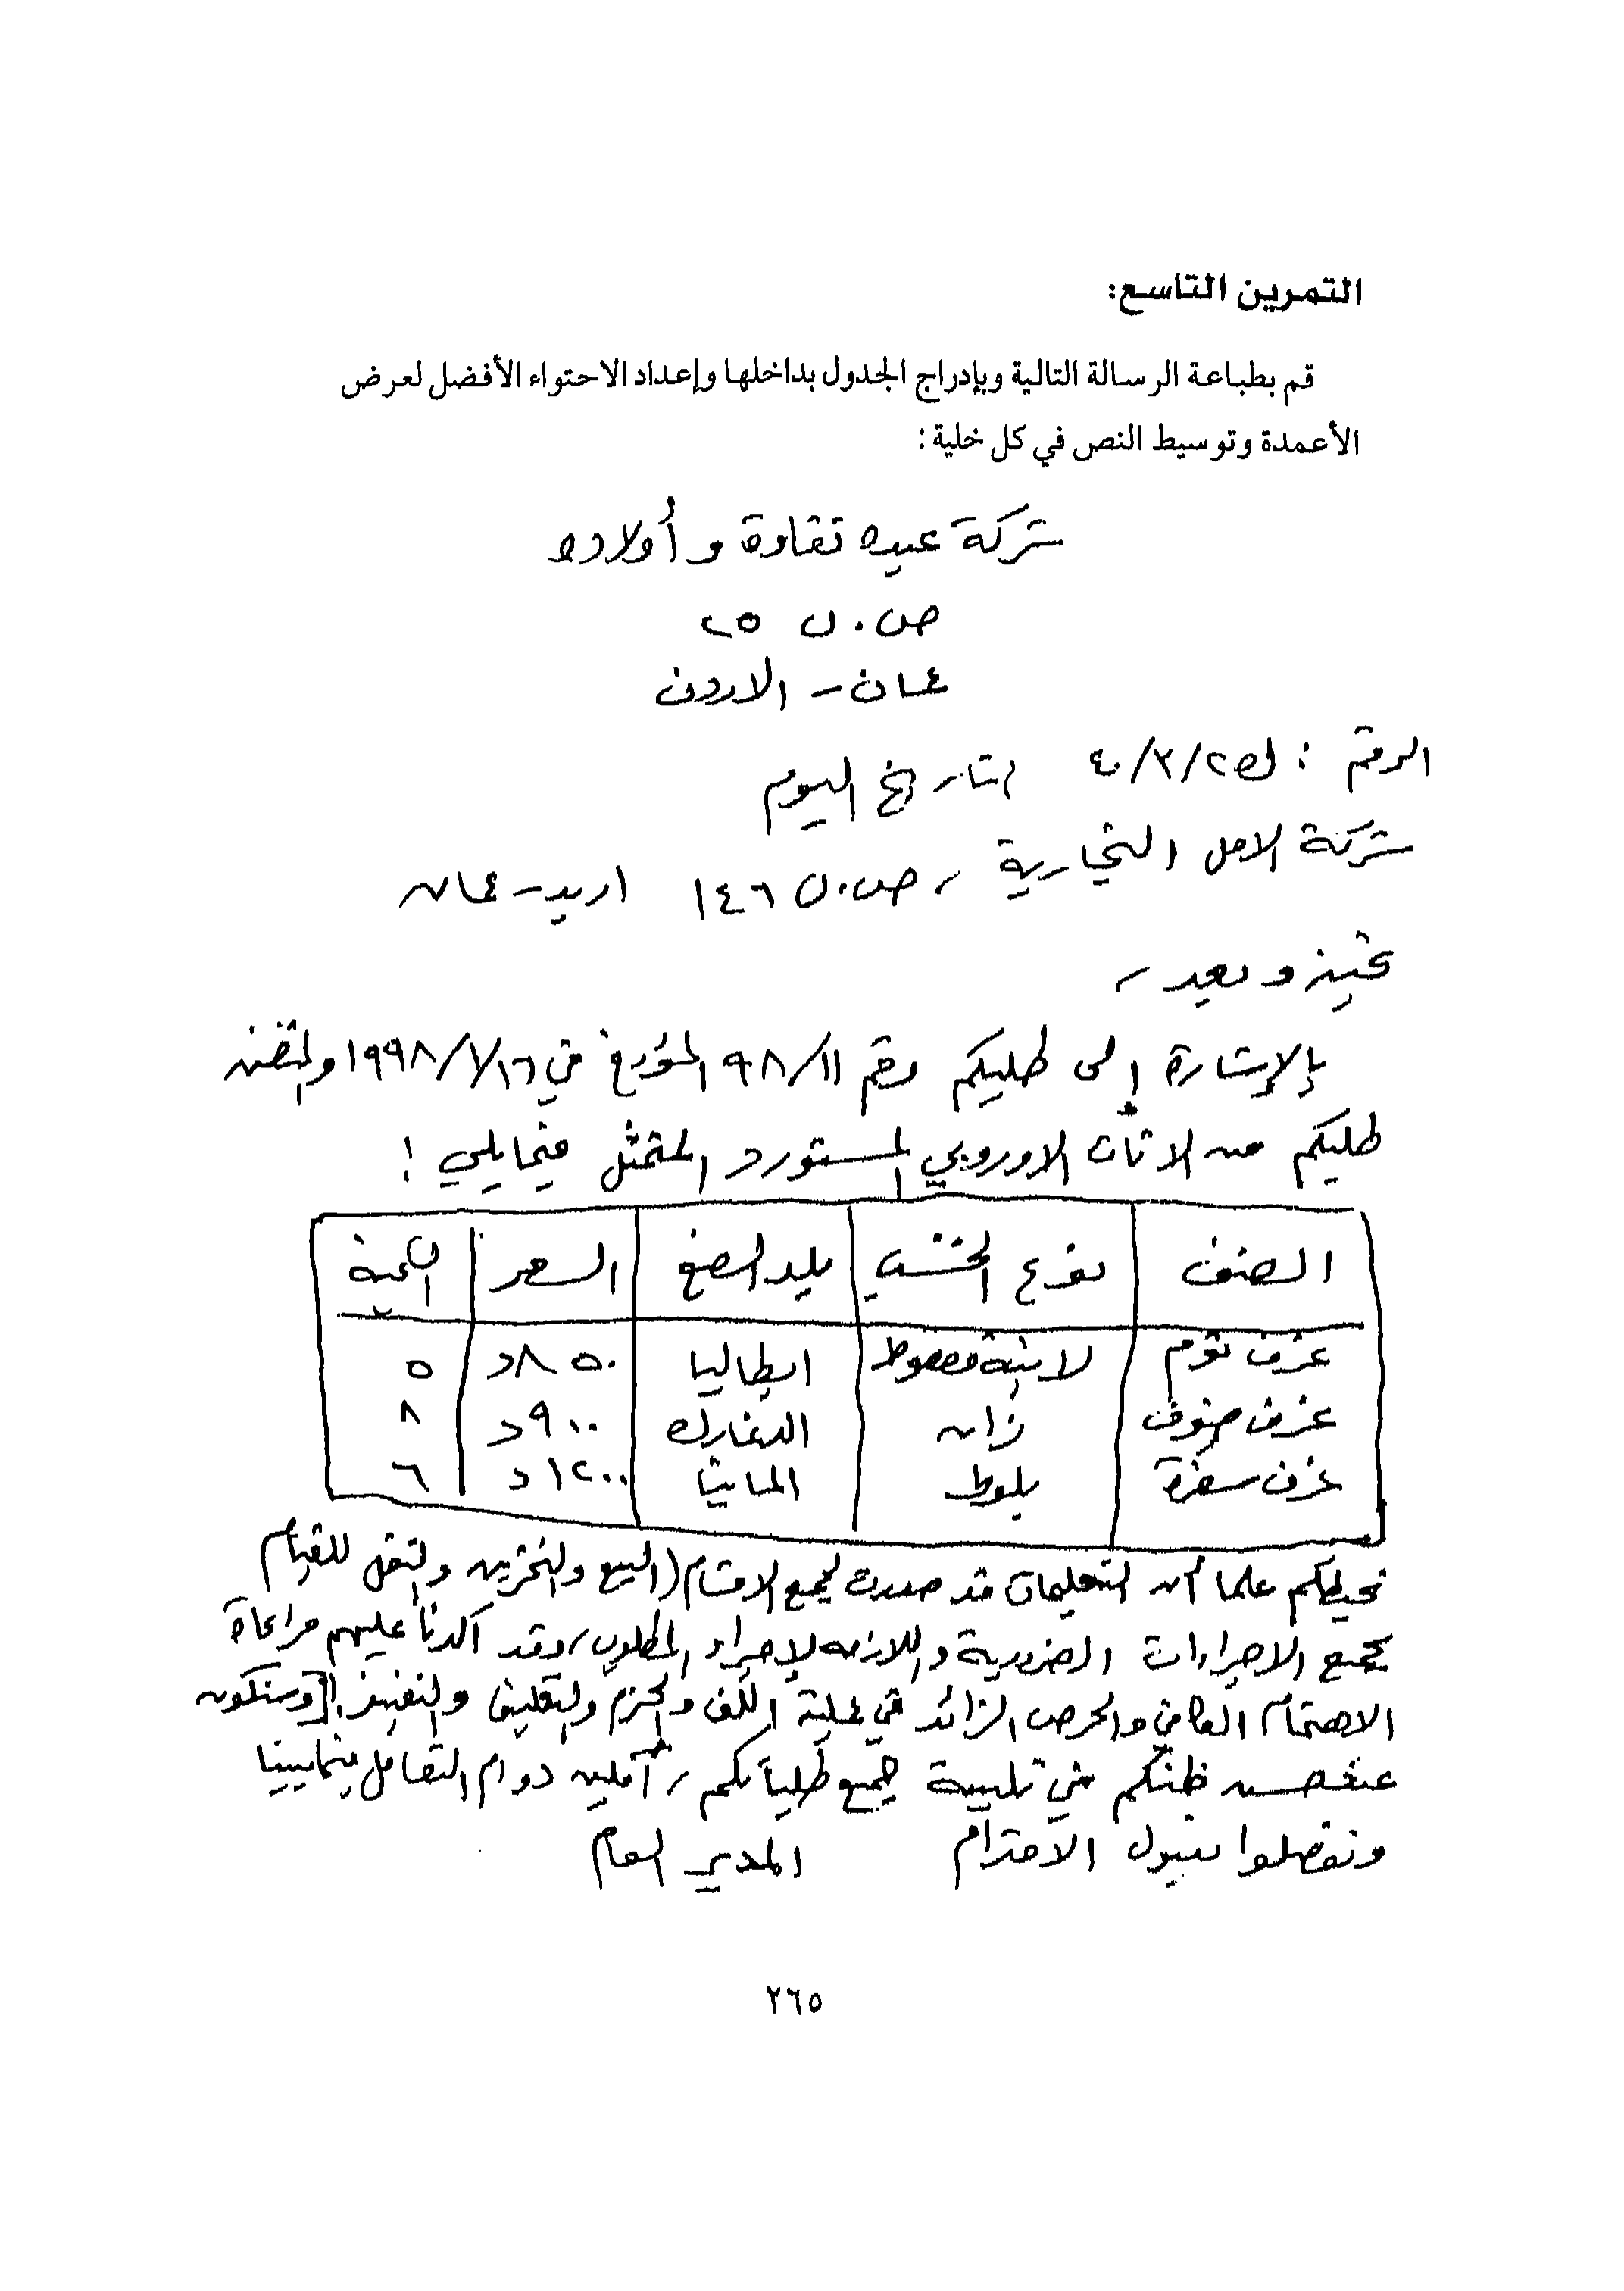 التمرين التاسع:
قم بطباعة الرسالة التالية وبإدراج الجدول بداخلها وإعداد الاحتواء الأفضل لعرض
الأعمدة وتوسيط النص في كل خلية:
شركة عبده نقاوة وأولاده
ص.ب ٢٥
عمان - الاردن
الرقم : ٤٠/٣/٢ تاريخ اليوم
شركة الامل التجارية، ص.ب ١٤٦ اربد - عمان
تحية وبعد،
بالإشارة إلى طلبكم رقم ٩٨/١١ المؤرخ في ١٩٩٨/١/١٦ والمتضمن
طلبكم من الاثاث الاوروبي المستورد المتمثل فيما يلي :
الصنف | نوع الخشب | بلد الصنع | السعر | الكمية
غرف نوم | لاتيه مضغوط | ايطاليا | ٨٥٠ د | ٥
غرف ضيوف | زان | الدنمارك | ٩٠٠ د | ٨
غرف سفرة | بلوط | المانيا | ١٢٠٠ د | ٦
نحيطكم علما أن التعليمات قد صدرت لجميع الاقسام (البيع والتخزين والنقل للقيام
بجميع الاجراءات الضرورية واللازمه لإجراء المطلوب، وقد أكدنا عليهم مراعاة
الاهتمام الكافي والحرص الزائد في عملية اللف والحزم والتغليف والتنفيذ [وسنكون
عند حسن ظنكم في تلبية جميع طلباتكم، آملين دوام التعامل فيما بيننا
وتفضلوا بقبول الاحترام المدير العام
٢٦٥